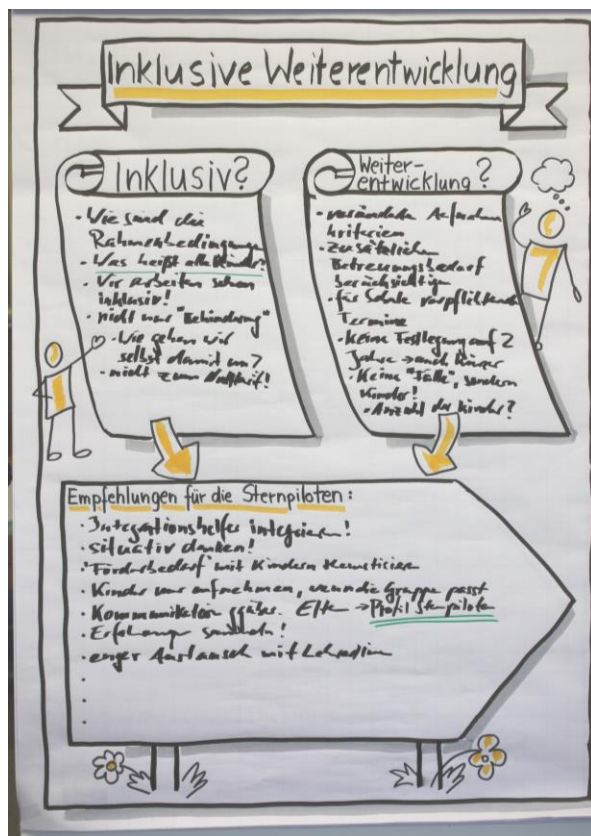 Inklusive Weiterentwicklung
Inklusiv?
· Wie sind die
Rahmenbedingungen
· Was heißt alle Kinder?
· Wir arbeiten schon
inklusiv!
· nicht nur "Behinderung"
· Wie gehen wir
selbst damit um?
· nicht zum
Weiter-
entwicklung?
· veränderte Aufnahme
kriterien
· zusätzlichen
Betreuungsbedarf
berücksichtigen
· für Schule verpflichtende
Termine
· keine Festlegung auf 2
Jahre → auch kürzer
· Keine "Fälle", sondern
Kinder!
· Anzahl der Kinder?
Empfehlungen für die Sternpiloten:
· Integrationshelfer integrieren!
· situativ denken!
· Förderbedarf mit Kindern
· Kinder nur aufnehmen, wenn die Gruppe passt
· Kommunikation ggüber. → Profil Sternpiloten
· Erfahrungen sammeln!
· enger Austausch mit